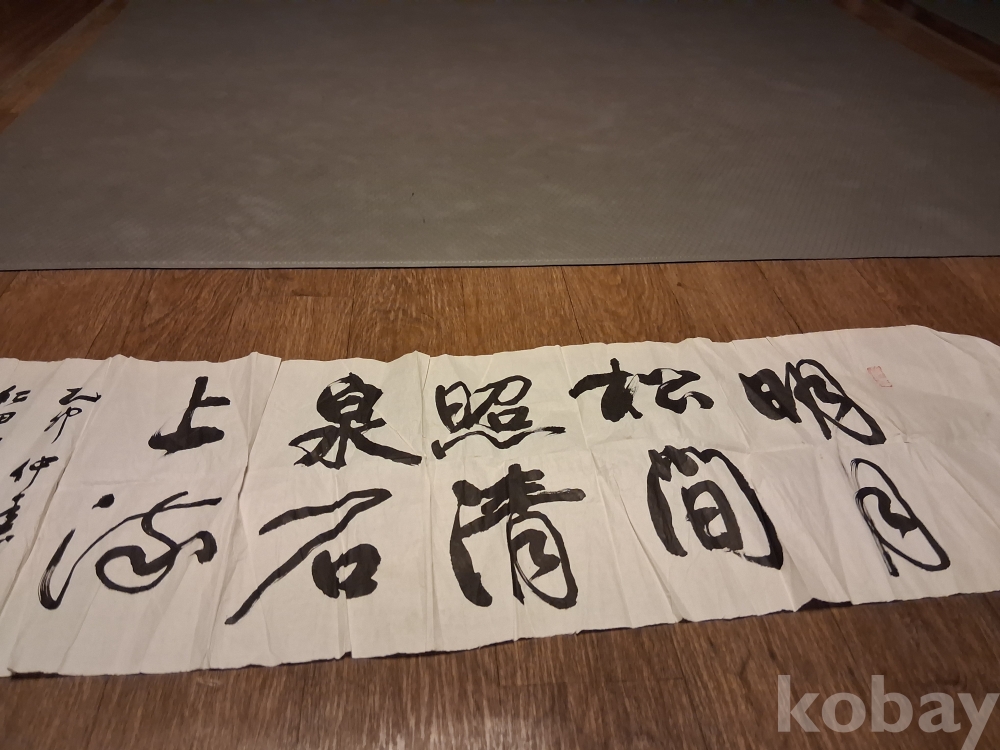 明月
松間
照清
泉石
上流
乙卯仲
kobay